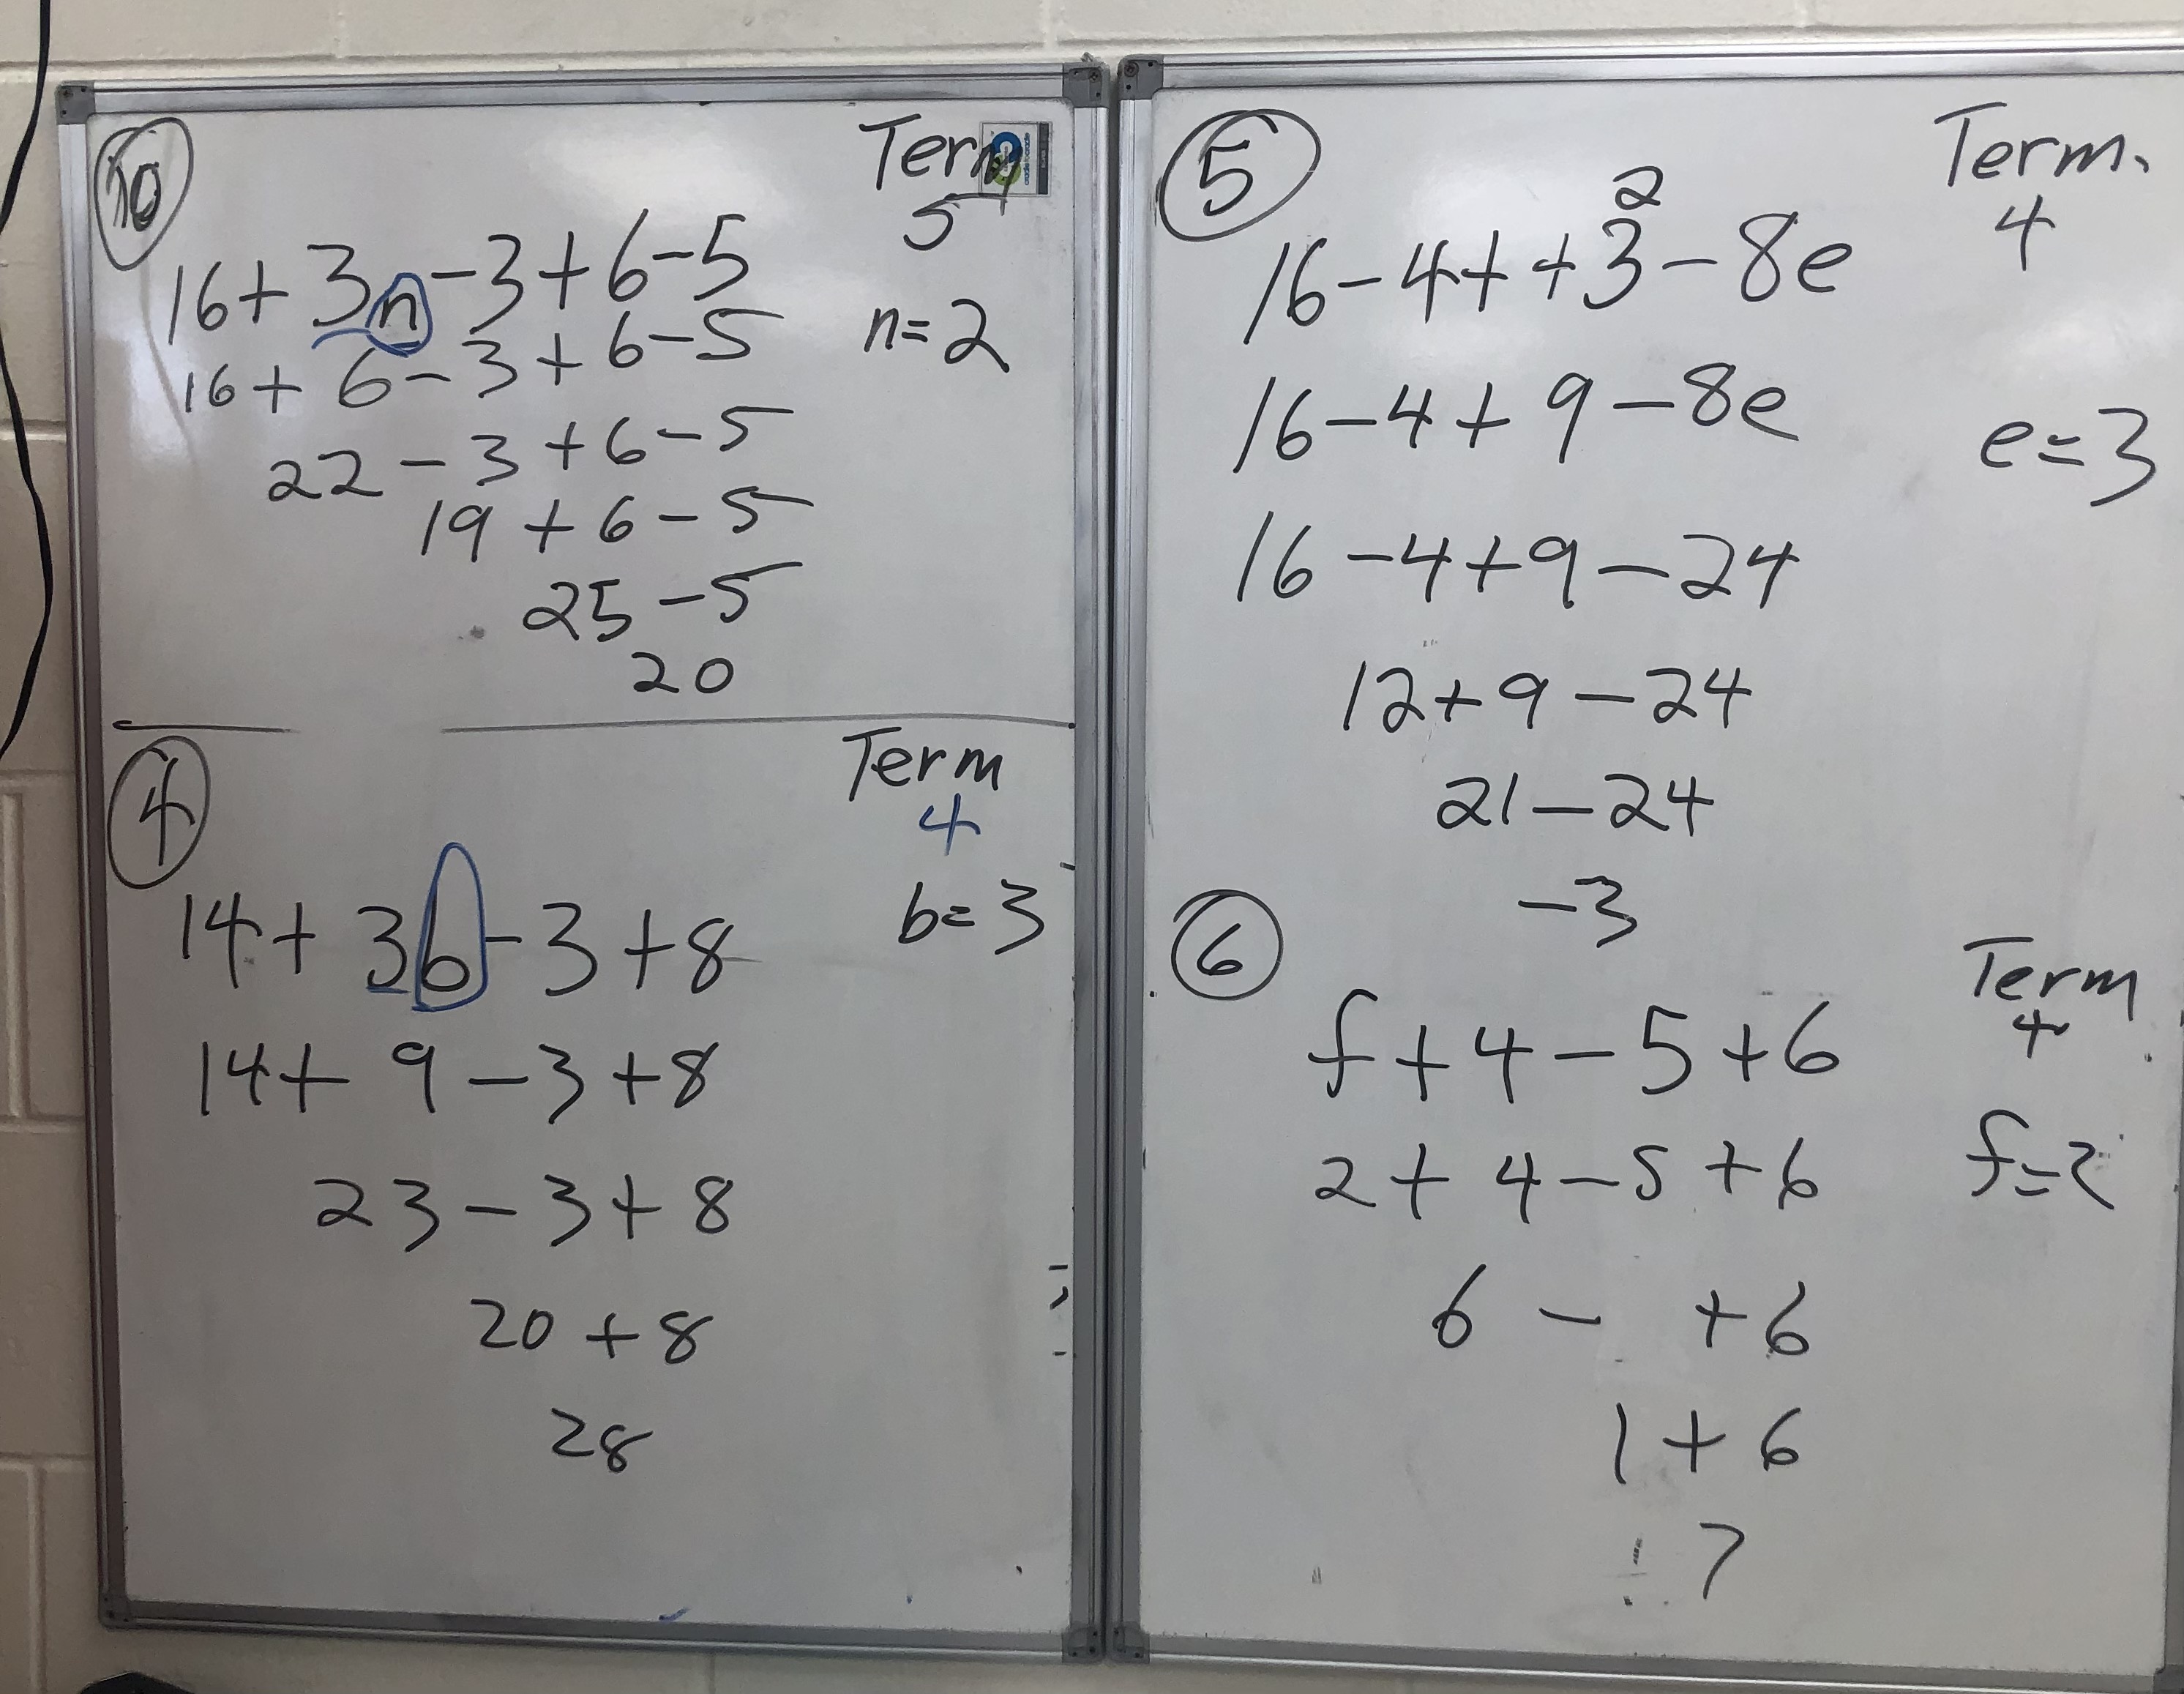 10
Term
5
16+3n-3+6-5
n=2
16+6-3+6-5
22-3+6-5
19+6-5
25-5
20
4
Term
4
14+3b-3+8
b=3
14+9-3+8
23-3+8
20+8
28
5
Term.
4
16-4++3²-8e
16-4+9-8e
e=3
16-4+9-24
12+9-24
21-24
-3
6
Term
4
f+4-5+6
f=2
2+4-5+6
6- +6
1+6
7